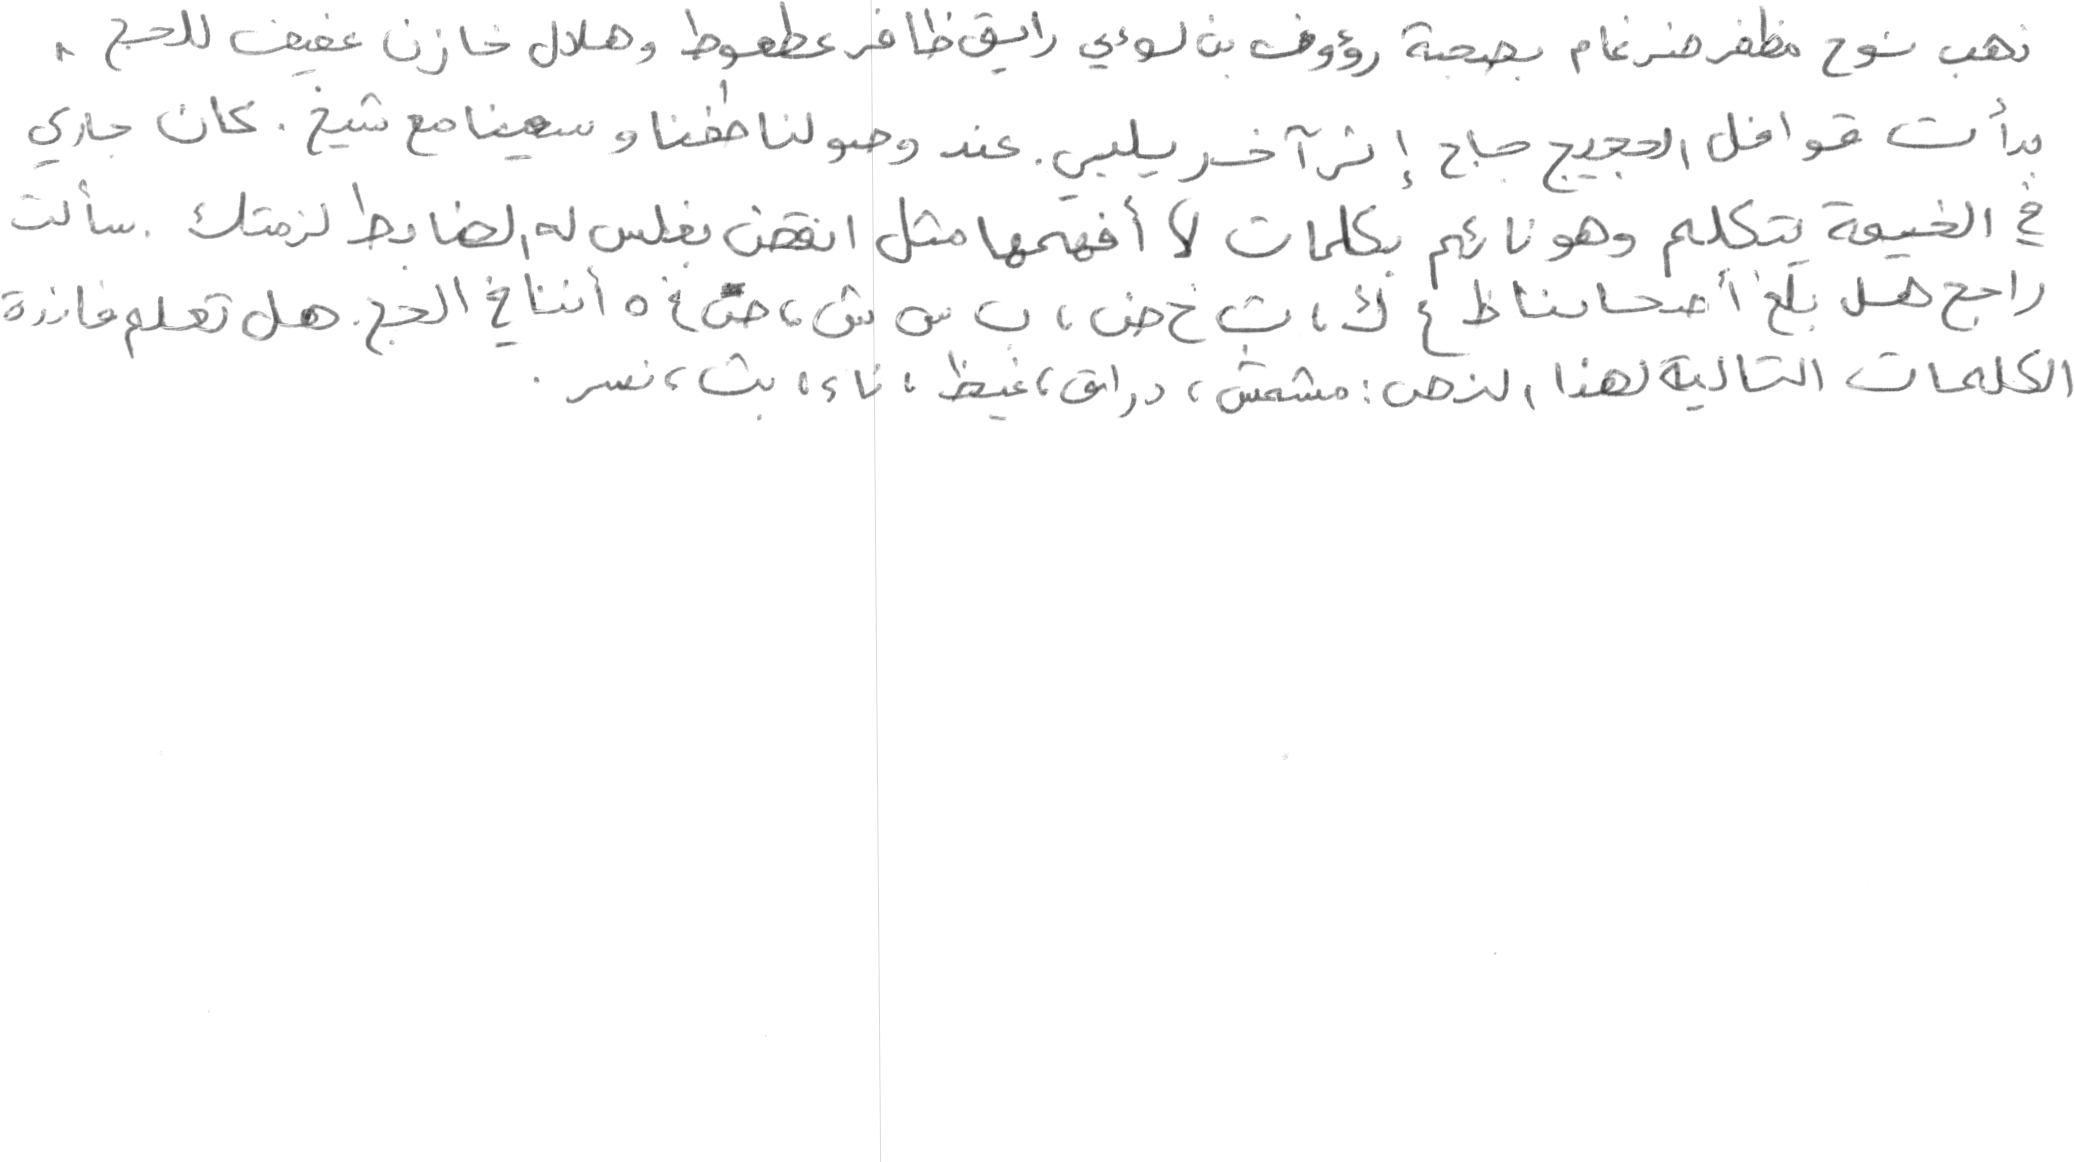 ذهب نوح مظفر ضرغام بصحبة رؤوف بن لوءي رايق ظافر عطعوط وهلال خازن عفيف للحج .
بدأت قوافل الحجيج حاج إثر آخر يلبي . عند وصولنا طفنا و سعينا مع شيخ . كان جاري
في الخيمة يتكلم وهو نائم بكلمات لا أفهمها مثل انقض بغلس له الضابط لزمتك . سألت
راجح هل بلغ أصحابنا ظ ع ك ، ث خ ض ، ب س ش ، ص غ ه أننا في الحج . هل تعلم فائدة
الكلمات التالية لهذا النص : مشمش ، دراق ، غيظ ، ناء ، بث ، نسر .